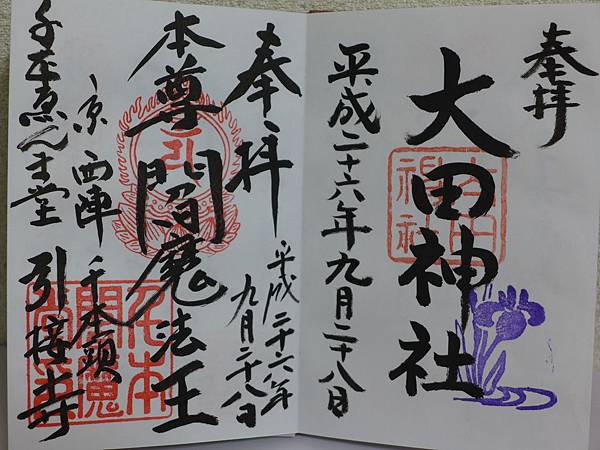 奉拝
大田神社
平成二十六年九月二十八日
大田神社
奉拝
平成二十六年
九月二十八日
本尊閻魔法王
京西陣千本頭
引接寺
千本ゑんま堂